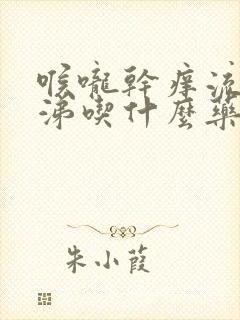 喉嚨幹癢流
涕喫什麼藥
朱小葭